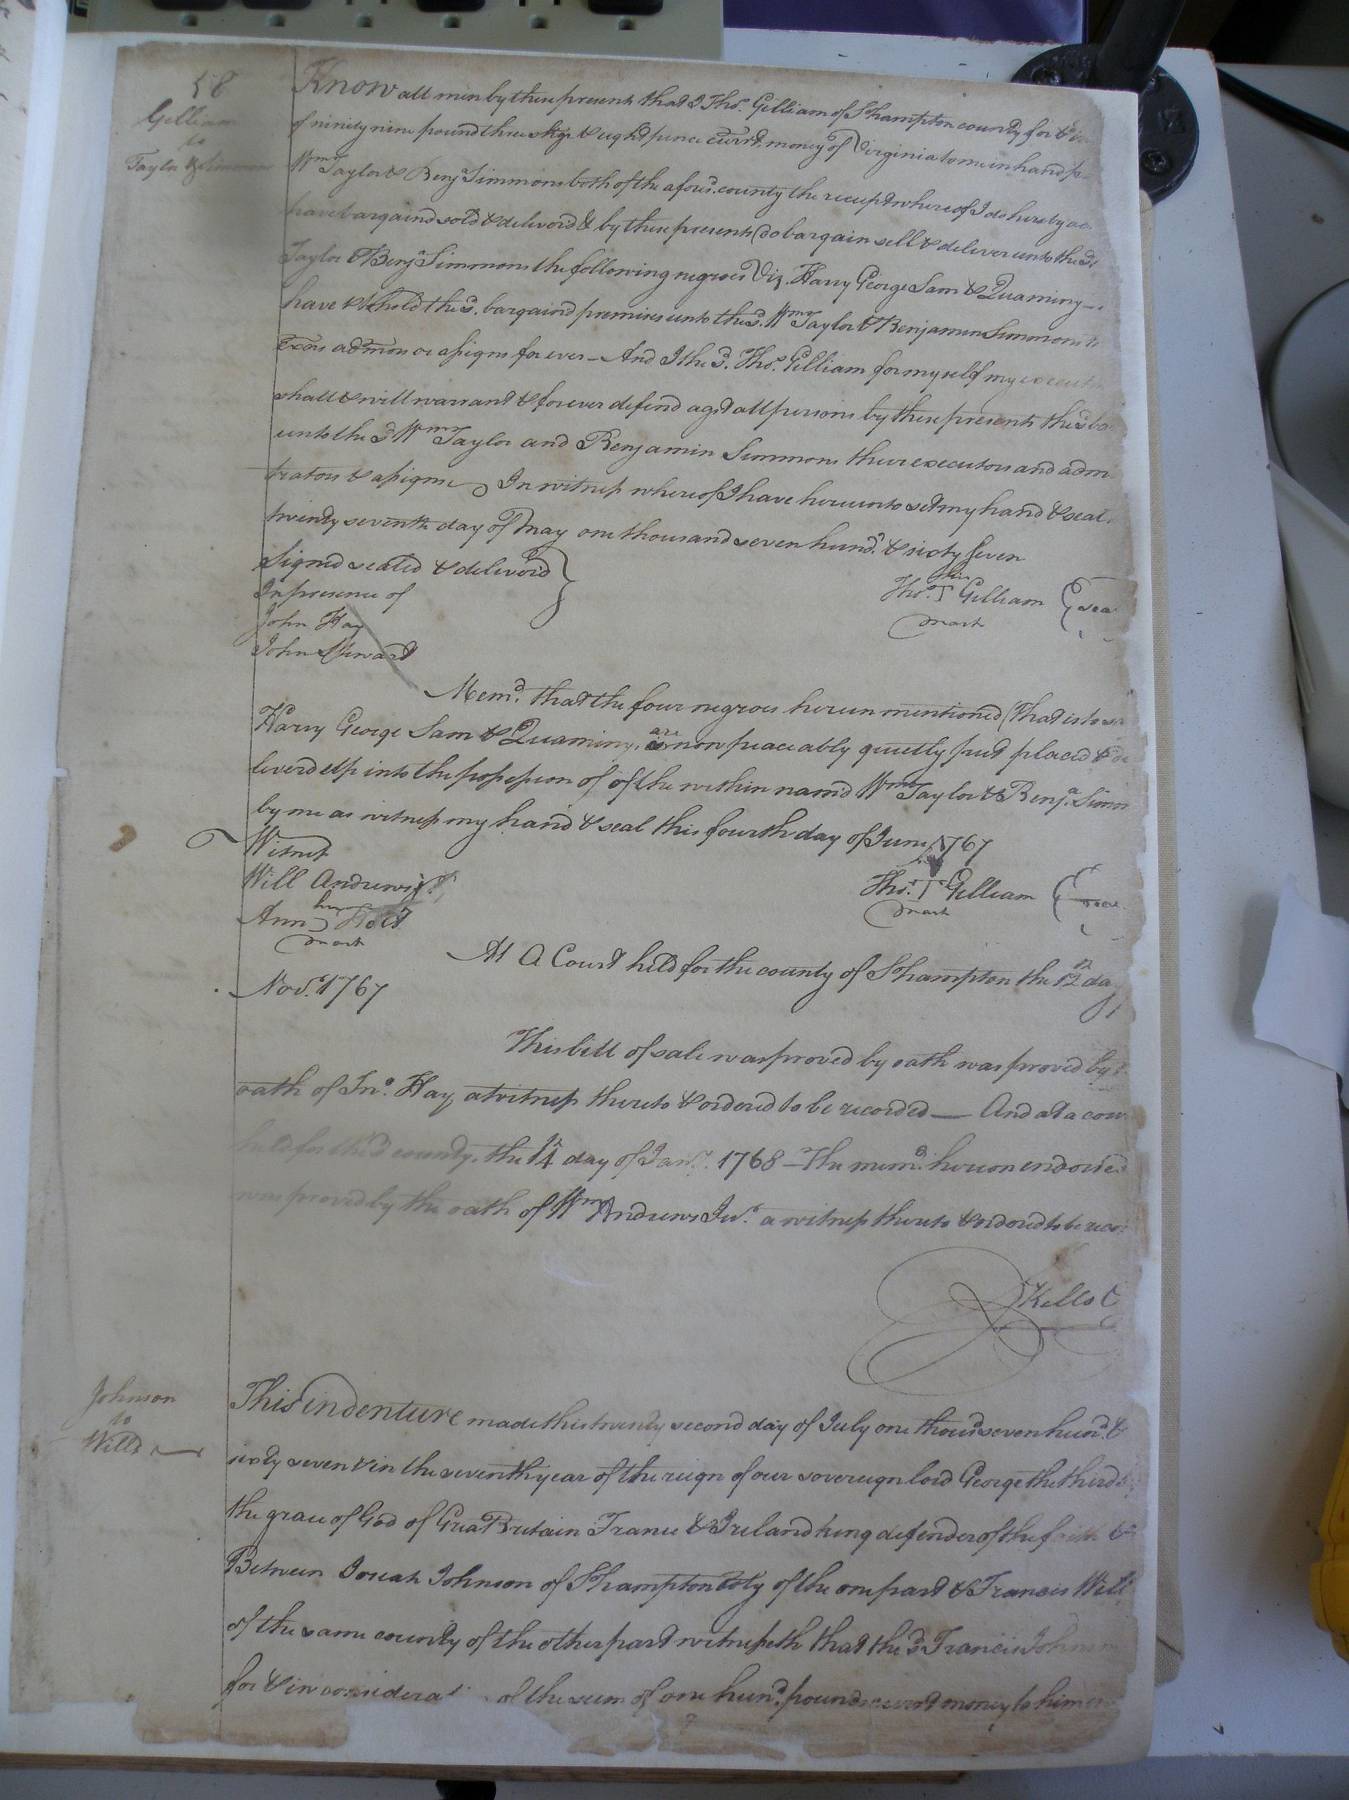 58
Gilliam
to
Taylor & Simmons
Know all men by these presents that I Thos. Gilliam of Shampton county for & in
of ninety nine pound three shgs & eight pence Currt. money of Virginia to me in hand p
Wm Taylor & Benja Simmons both of the afores. county the receipt whereof I do hereby ac
have bargaind sold & deliverd & by these presents do bargain sell & deliver unto the sd
Taylor & Benja Simmons the following negroes Viz. Harry George Sam & Quaminy
have & to hold the sd. bargaind premises unto the sd. Wm Taylor & Benjamin Simmons
Exors admors or assigns for ever - And I the sd. Thos. Gilliam for my self my executors
shall & will warrant & forever defend agst all persons by these presents the sd ba
unto the sd Wm Taylor and Benjamin Simmons their executors and adm
trators & assigns In witness whereof I have hereunto set my hand & seal
twenty seventh day of May one thousand seven hund. & sixty seven
Signed sealed & deliverd
In presence of
John Hay
John Steward
his
Thos. T Gilliam
mark
sea
Memd. that the four negroes herein mentioned (that is to sa
Harry George Sam & Quaminy, are now peaceably quietly put placed & de
liverd up into the possession of of the within namd Wm Taylor & Benja. Simm
by me as witness my hand & seal this fourth day of June 1767
Witness
Will Andrews Jr.
her
Ann Holt
mark
Thos. T Gilliam
mark
seal
At A Court held for the county of Shampton the 12th day
Novr. 1767
This bill of sale was proved by oath was proved by
oath of Jno. Hay a witness thereto & ordered to be recorded — And at a cour
held for the sd county, the 14 day of Jany. 1768 — The memd. hereon endorsed
was proved by the oath of Wm Andrews Junr. a witness thereto & ordered to be recor
Kello C
Johnson
to
Wills
This indenture made this twenty second day of July one thousd seven hund. &
sixty seven & in the seventh year of the reign of our sovereign lord George the third
the grace of God of Great Britain France & Ireland king defender of the faith &c
Between Josiah Johnson of Shampton Coty of the one part & Francis Will
of the same county of the other part witnesseth that the sd Francis Johnson
for & in considerat of the sum of one hund. pounds currt money to him